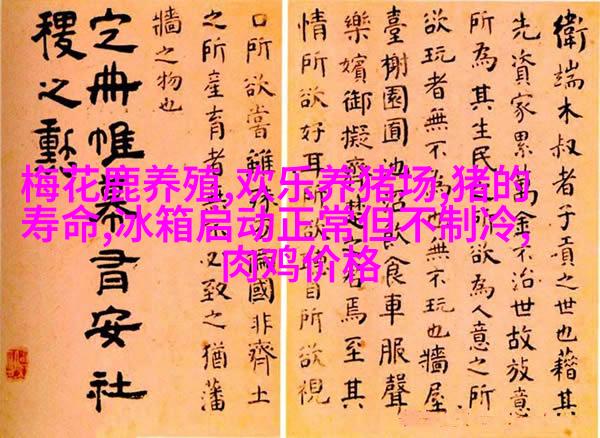 衛端木叔者子貢之世也藉其
先資家累萬金不治世故放意
所為其生民欲為人意之所
欲玩者無不為也無不玩也牆屋
臺榭園囿也飲食車服聲
樂嬪御擬齊楚之君焉至其
情所欲好耳所欲聽目所欲視
口所欲嘗雖殊偏國非齊土
之所産育者致之猶藩
牆之物也
定冊帷幕有安社
稷之勲
梅花鹿养殖,欢乐养猪场,猪的
寿命,冰箱启动正常但不制冷,
肉鸡价格